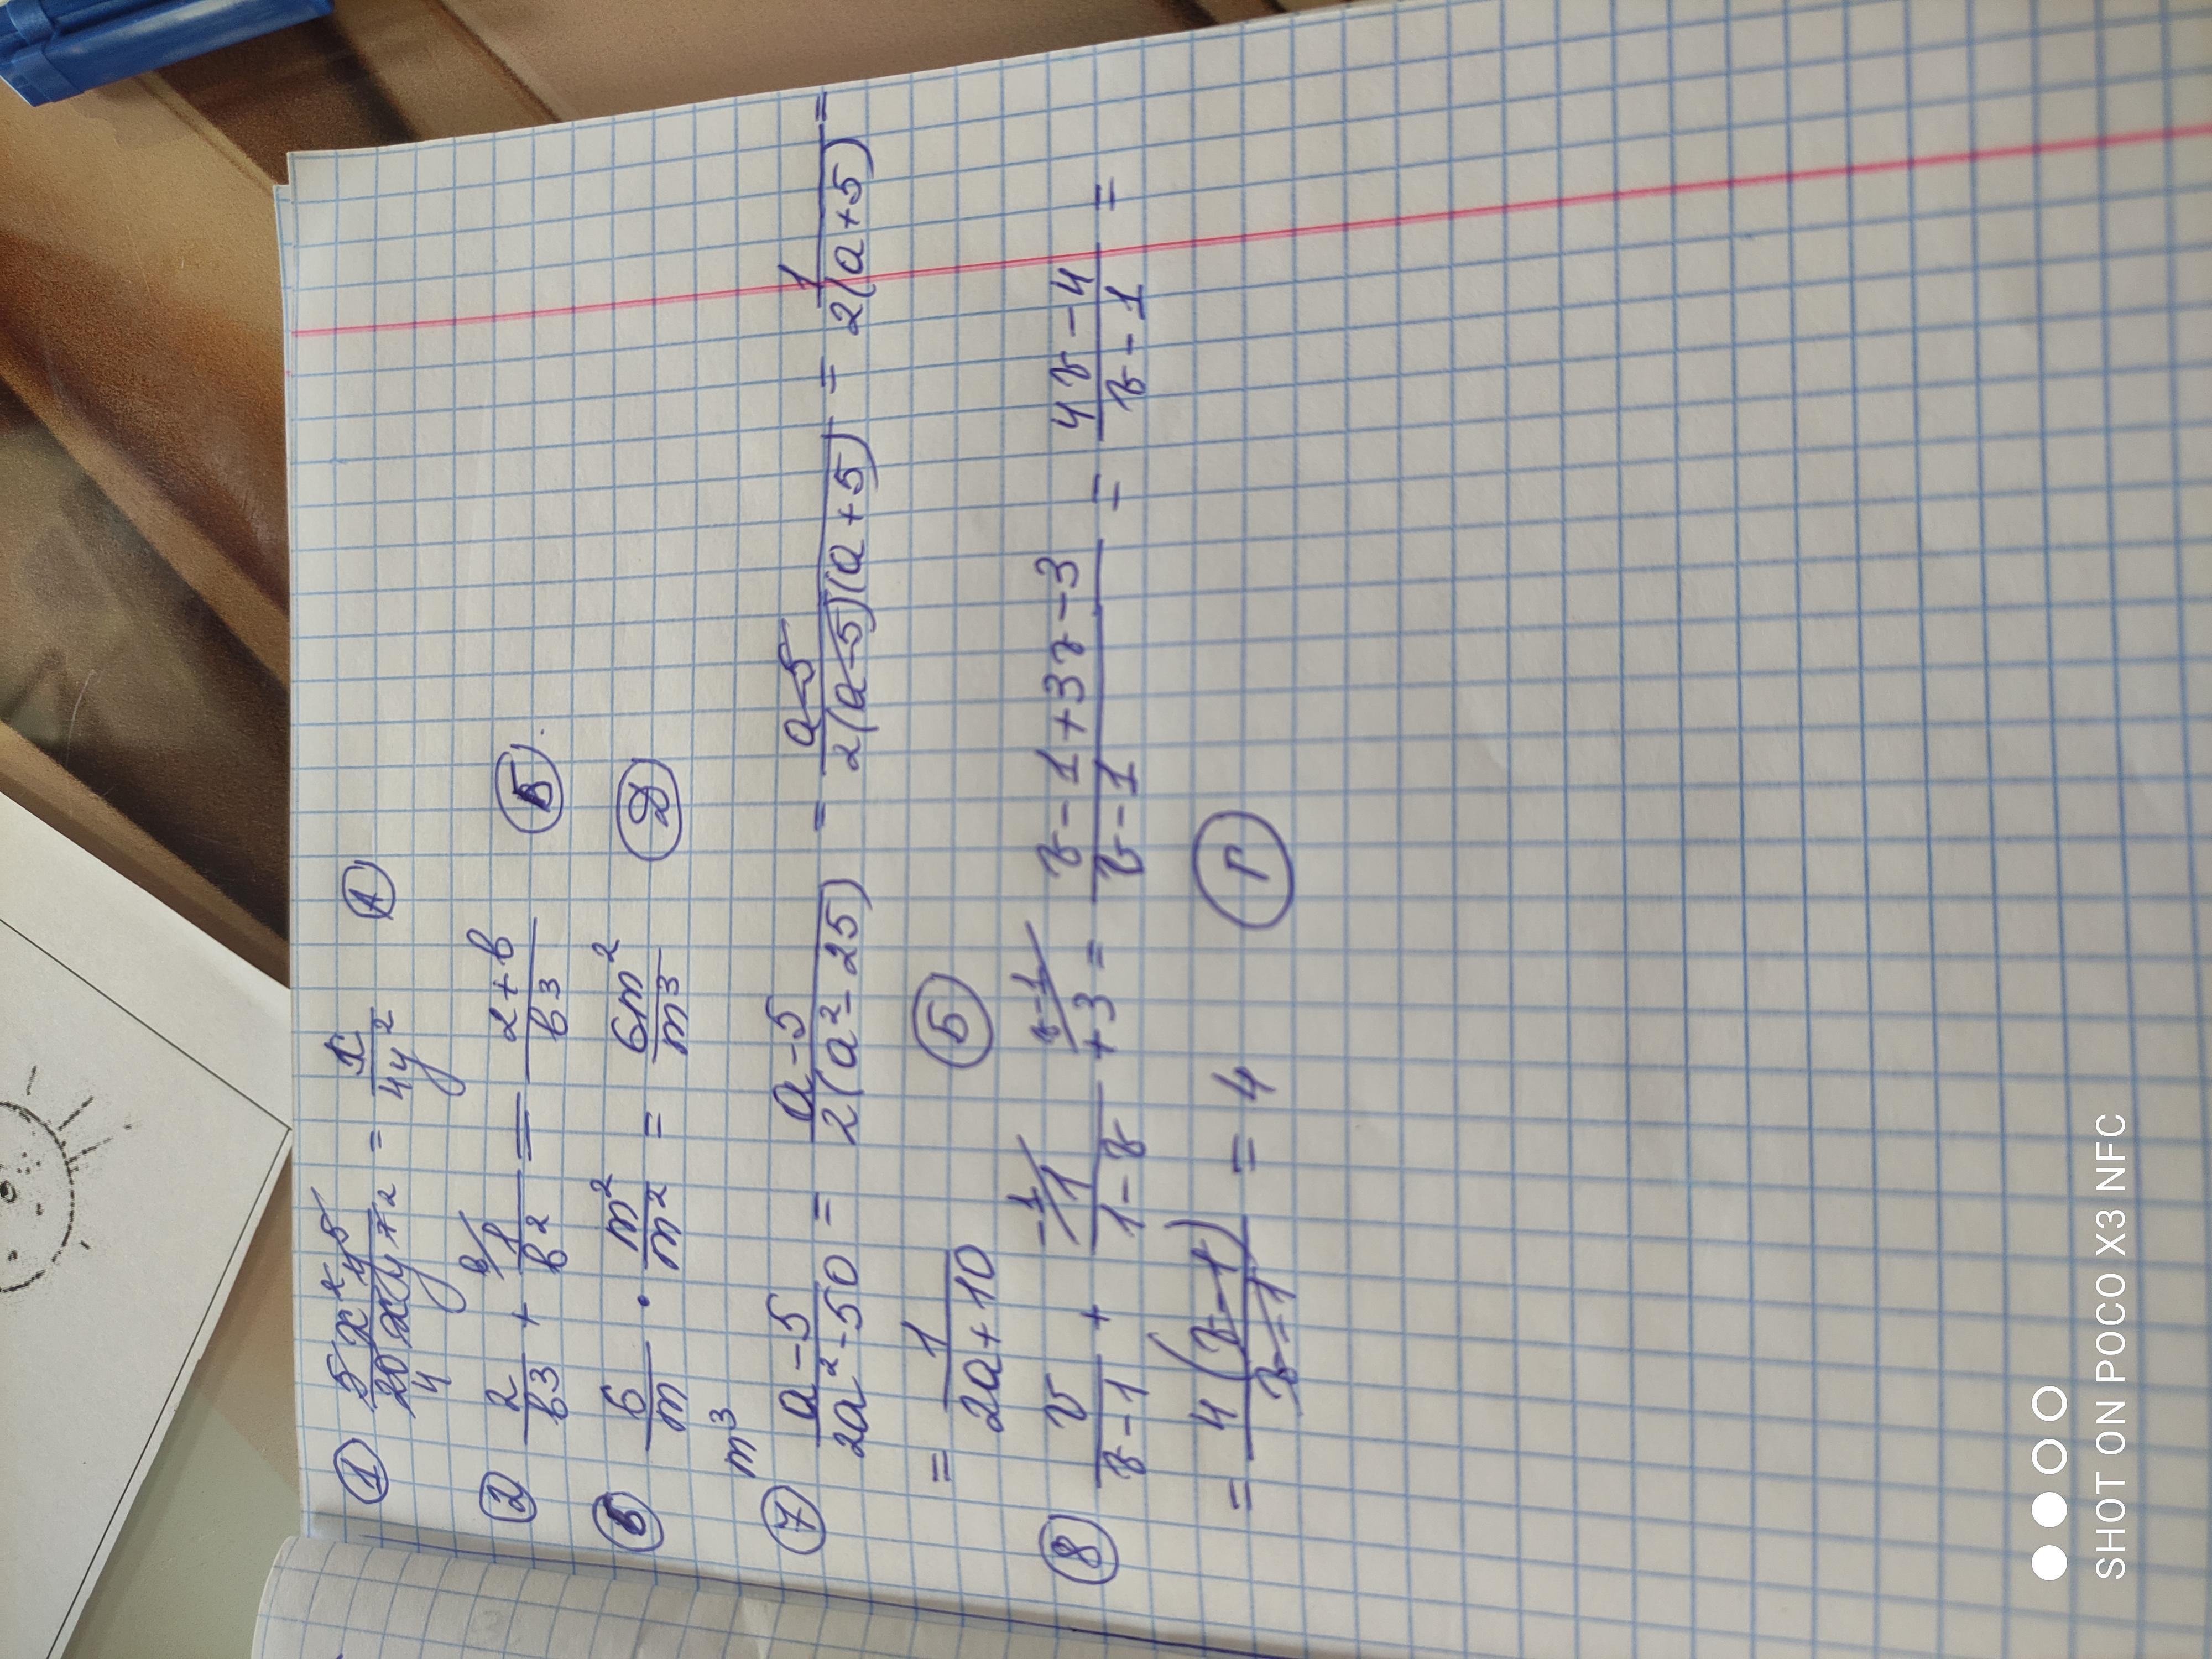 ① 5x⁴y⁵/20x⁴y⁷ ² 4 = 1/4y² Ⓐ
② 2/b³ + b/ 1/b² = 2+b/b³ Ⓑ.
⑥ 6/m · m²/m² = 6m²/m³ Ⓓ
m³
⑦ a-5/2a²-50 = a-5/2(a²-25) = a-5/2(a-5)(a+5) = 1/2(a+5) =
= 1/2a+10 Ⓑ
⑧ v/v-1 + -1/ 1/1-v v-1/ +3 = v-1+3v-3/v-1 = 4v-4/v-1 =
= 4(v-1)/v-1 = 4 Ⓖ
SHOT ON POCO X3 NFC